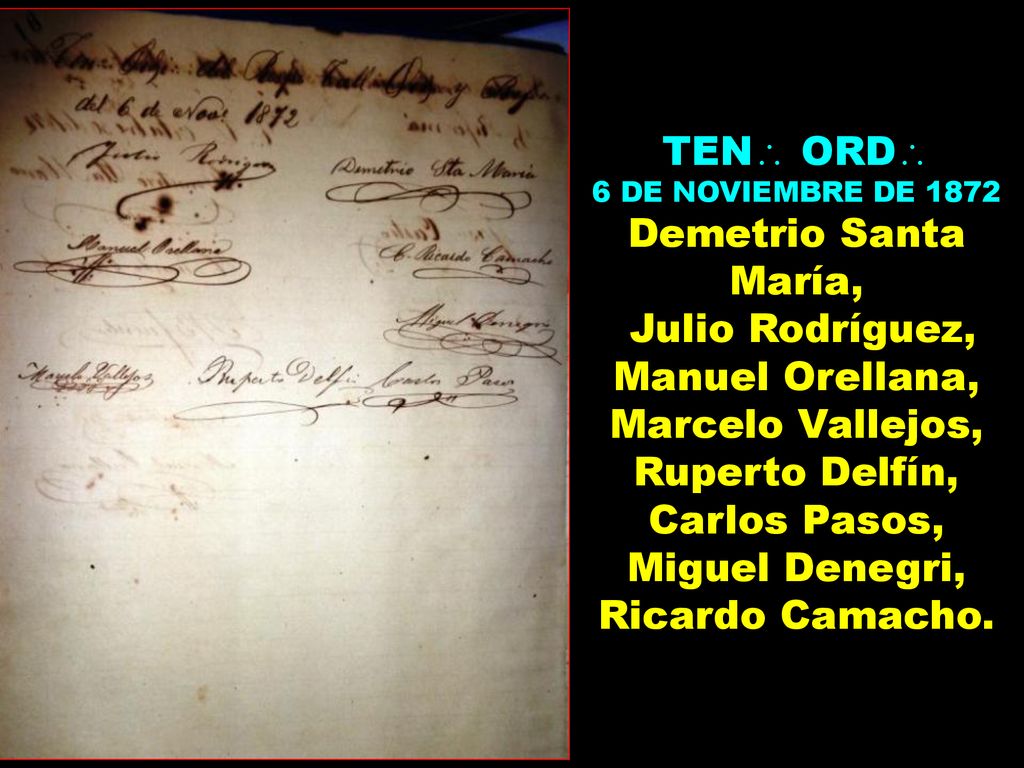 Ten∴ Ord∴ del Resp∴ Tall∴ Orden y
del 6 de Nove. 1872
Julio Rodriguez
Demetrio Sta María
Manuel Orellana
C. Ricardo Camacho
Miguel Denegri
Marcelo Vallejos
Ruperto Delfin
Carlos Pasos
TEN∴ ORD∴
6 DE NOVIEMBRE DE 1872
Demetrio Santa
María,
Julio Rodríguez,
Manuel Orellana,
Marcelo Vallejos,
Ruperto Delfín,
Carlos Pasos,
Miguel Denegri,
Ricardo Camacho.